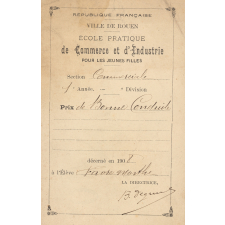 RÉPUBLIQUE FRANÇAISE
VILLE DE ROUEN
ÉCOLE PRATIQUE
de Commerce et d'Industrie
POUR LES JEUNES FILLES
Section Commerciale
1e Année. — Division
Prix de Bonne Conduite
décerné en 190
à l'Élève
LA DIRECTRICE,